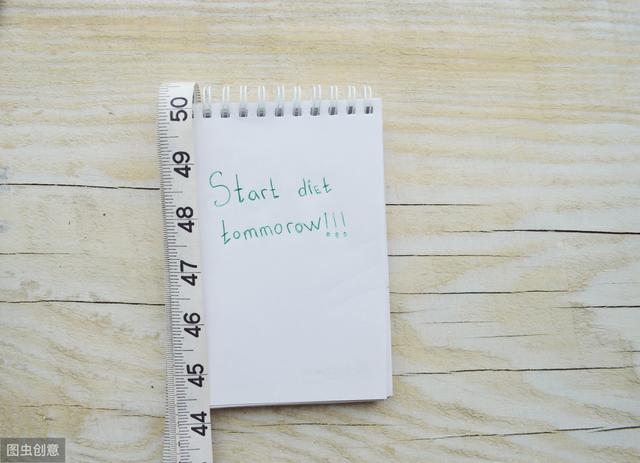 50
49
48
47
46
45
44
Start diet
tommorow!!!
图虫创意